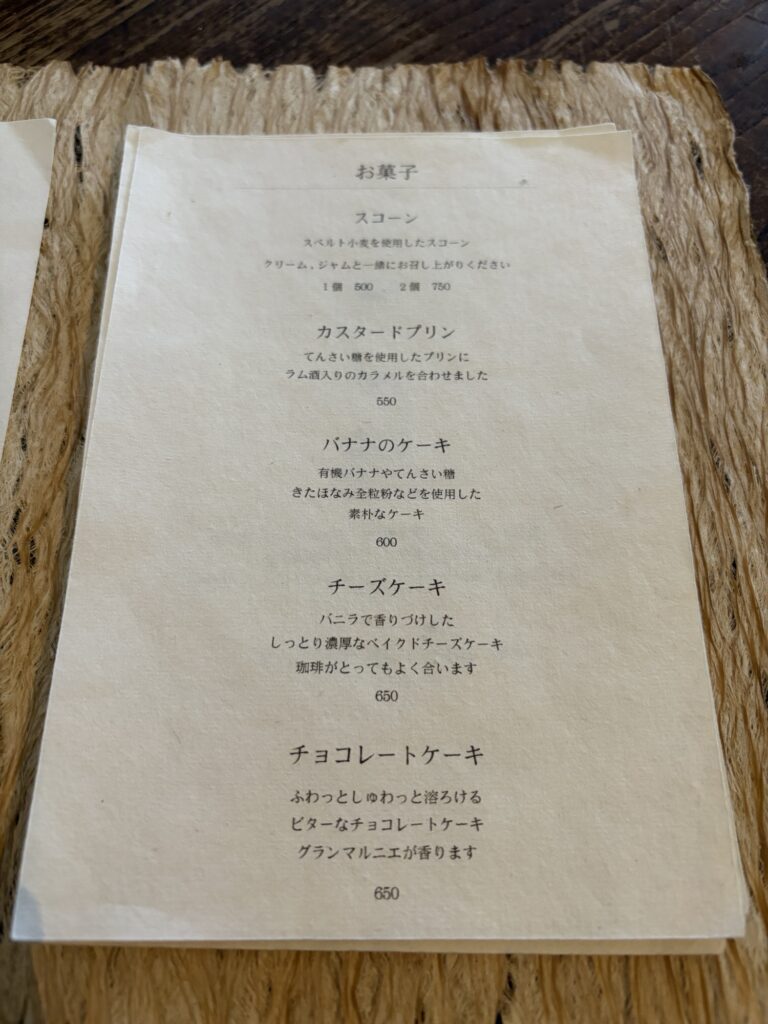 お菓子
スコーン
スペルト小麦を使用したスコーン
クリーム、ジャムと一緒にお召し上がりください
1個 500 . 2個 750
カスタードプリン
てんさい糖を使用したプリンに
ラム酒入りのカラメルを合わせました
550
バナナのケーキ
有機バナナやてんさい糖
きたほなみ全粒粉などを使用した
素朴なケーキ
600
チーズケーキ
バニラで香りづけした
しっとり濃厚なベイクドチーズケーキ
珈琲がとってもよく合います
650
チョコレートケーキ
ふわっとしゅわっと溶ろける
ビターなチョコレートケーキ
グランマルニエが香ります
650